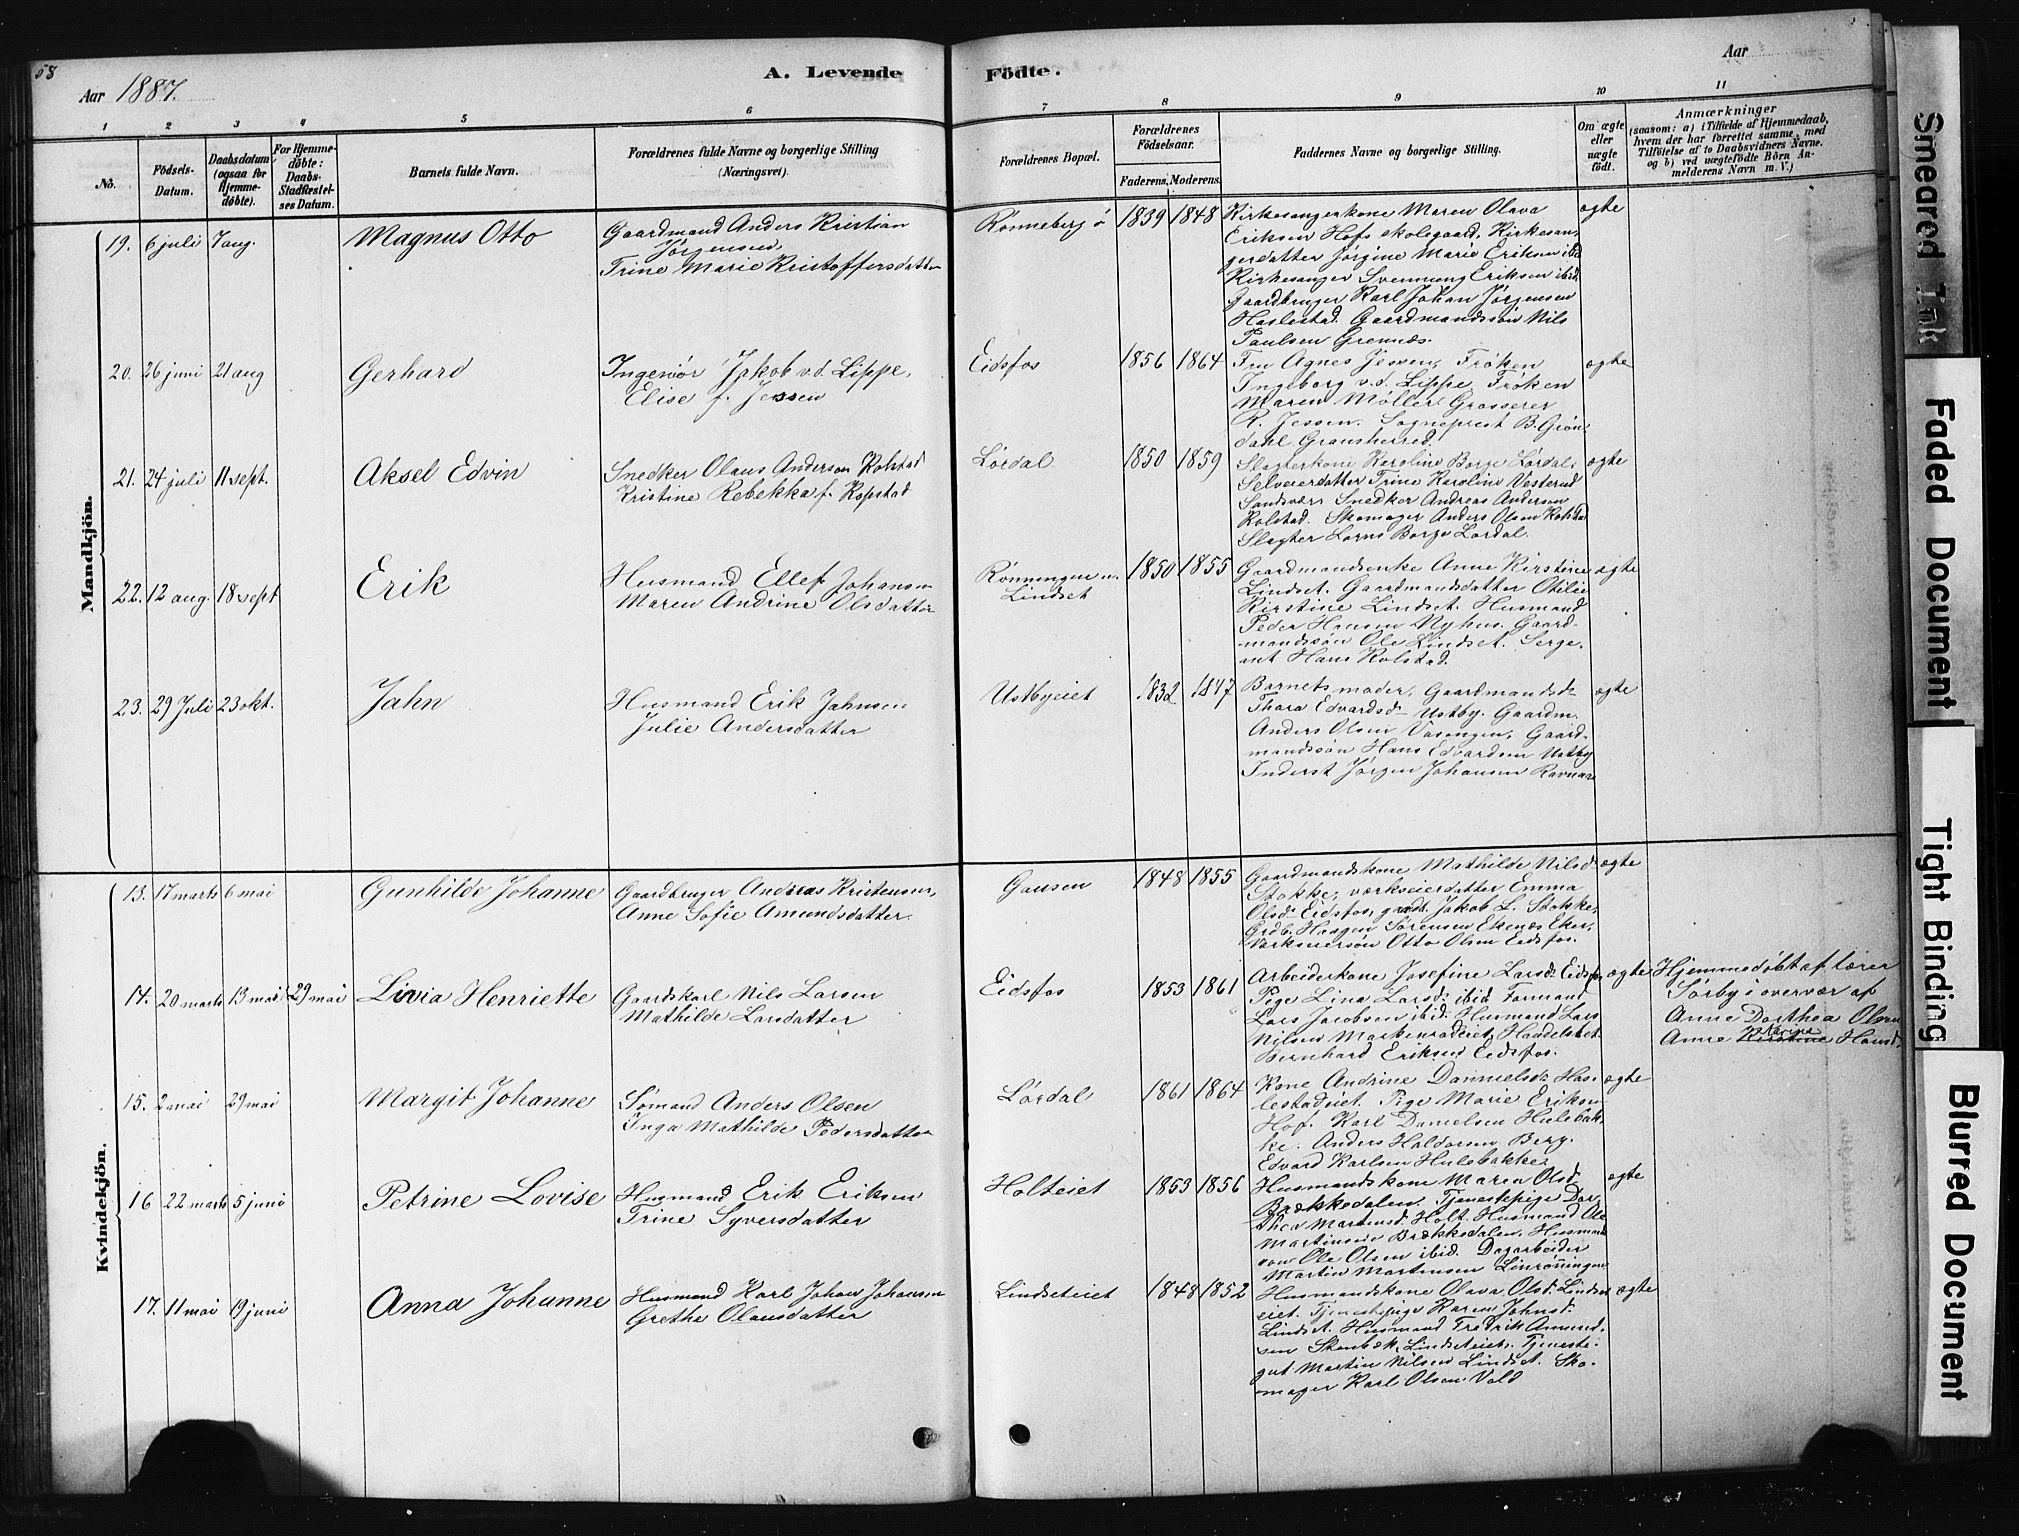 58
Aar 1887.
A. Levende Födte.
Aar
1 2 3 4 5 6 7 8 9 10 11
No.
Födsels-
Datum.
Daabsdatum
(ogsaa for
Hjemme-
döbte).
For Hjemme-
döbte:
Daabs-
Stadfæstel-
ses Datum.
Barnets fulde Navn.
Forældrenes fulde Navne og borgerlige Stilling
(Næringsvei).
Forældrenes Bopæl.
Forældrenes
Födselsaar.
Faderens. Moderens.
Faddernes Navne og borgerlige Stilling.
Om ægte
eller
uægte
født.
Anmærkninger
(saasom: a) i Tilfælde af Hjemmedaab,
hvem der har forrettet samme, med
Tilføielse af to Daabsvidners Navne.
og b) ved uægtefödte Börn An-
melderens Navn m. V.)
Mandkjön.
19. 6 juli 7 aug. Magnus Otto
Gaardmand Anders Kristian
Jørgensen,
Trine Marie Kristoffersdatter
Rønneberg ø 1839 1848
Kirkesangerkone Maren Olava
Eriksen Hofs skolegaard. Kirkesan-
gerdatter Jørgine Marie Eriksen ibid
Kirkesanger Svennung Eriksen ibid.
Gaardbruger Karl Johan Jørgensen
Haslestad. Gaardmandssøn Nils
Paulsen Grennes.
ægte
20. 26 juni 21 aug Gerhard
Ingeniør Jakob v.d. Lippe,
Elise f. Jessen
Eidsfos 1856 1864
Fru Agnes Jessen, Frøken
Ingeborg v.d. Lippe, Frøken
Maren Møller. Grosserer
R. Jessen. Sogneprest B. Grøn-
dahl Gransherred.
ægte
21. 24 juli 11 sept. Aksel Edvin
Snedker Olaus Anderson Kolstad
Kristine Rebekka f. Kopstad
Lørdal 1850 1859
Slagterkone Karoline Borge Lørdal,
Selveierdatter Trine Karoline Vesterud
Sandsvær. Snedker Andreas Anderson
Kolstad. Skomager Anders Olsen Kolstad
Slagter Lorns Borge Lørdal.
ægte
22. 12 aug. 18 sept Erik
Husmand Ellef Johansen
Maren Andrine Olsdatter
Rønningen u.
Lindset
1850 1855
Gaardmandsenke Anne Kirstine
Lindset. Gaardmandsdatter Otilie
Kirstine Lindset. Husmand
Peder Hansen Nyhus. Gaard-
mandssøn Ole Lindset. Serge-
ant Hans Kolstad.
ægte
23. 29 Juli 23 okt. Jahn
Husmand Erik Jahnsen
Julie Andersdatter
Ustbyeiet 1832 1847
Barnets moder, Gaardmandsdr
Thara Edvardsd. Ustby. Gaardm.
Anders Olsen Vasengen, Gaard-
mandssøn Hans Edvardsen Ustby
Inderst Jørgen Johansen Ravnaas
ægte
Kvindekjön.
13. 17 marts 6 mai Gunhilde Johanne
Gaardbruger Andreas Kristensen,
Anne Sofie Amundsdatter.
Gausen 1848 1855
Gaardmandskone Mathilde Nilsd.
Stokke, værkseierdatter Emma
Olsdr. Eidsfos, grdb. Jakob L. Stokke,
Grdb. Haagen Sørensen Ekenes Eker,
Værkseiersøn Otto Olsen Eidsfos.
ægte
14. 20 marts 13 mai 29 mai Livia Henriette
Gaardskarl Nils Larsen
Mathilde Larsdatter
Eidsfos 1853 1861
Arbeiderkone Josefine Larsd. Eidsfos
Pige Lina Larsd. ibid. Formand
Lars Jacobsen ibid. Husmand Lars
Nilsen Markenrødeiet, Handelsbet.
Bernhard Eriksen Eidsfos.
ægte
Hjemmedøbt af lærer
Sørby i overvær af
Anne Dorthea Olsen
Anne Kirstine Karine Hansd.
15. 2 mai 29 mai Margit Johanne
Sømand Anders Olsen
Inga Mathilde Pedersdatter
Lørdal 1861 1864
Kone Andrine Danielsdr. Has-
lestadeiet. Pige Marie Eriksen
Hof. Karl Danielsen Hulebak-
ke. Anders Haldorsen Berg.
Edvard Karlsen Hulebakke.
ægte
16 22 marts 5 juni Petrine Lovise
Husmand Erik Eriksen
Trine Syversdatter
Holteiet 1853 1856
Husmandskone Maren Olsd.
Brækkedalen, Tjenestepige Dor-
thea Martinsd. Holt. Husmand Ole
Martinsen Brækkedalen. Husmands-
søn Ole Olsen ibid. Dagarbeider
Martin Martinsen Linrønningen
ægte
17. 11 mai 19 juni Anna Johanne
Husmand Karl Johan Johansen
Grethe Olausdatter
Lindseteiet 1848 1852
Husmandskone Olava Olsd. Lindset-
eiet. Tjenestepige Karen Johnsd.
Lindset. Husmand Fredrik Amund-
sen Skenbæk, Lindseteiet, Tjeneste-
gut Martin Nilsen Lindset. Sko-
mager Karl Olsen Vold
ægte
Smeared Ink
Faded Document
Tight Binding
Blurred Document